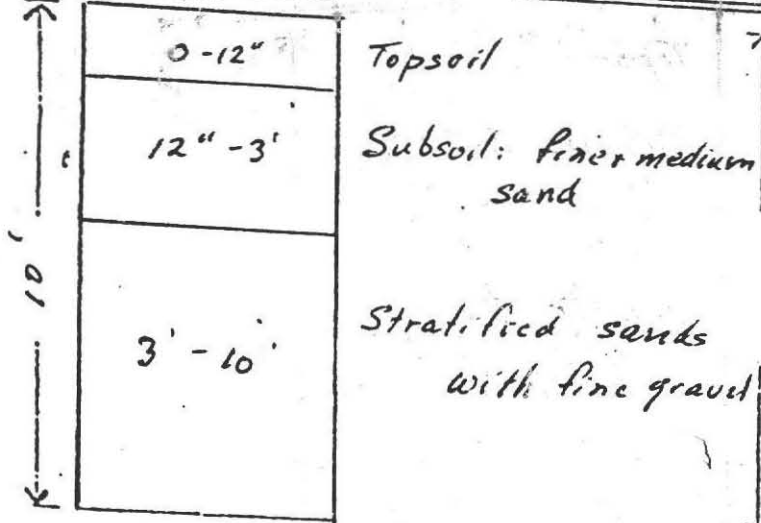 0-12"
Topsoil
12" - 3'
Subsoil: fine + medium
sand
10'
3' - 10'
Stratified sands
with fine gravel